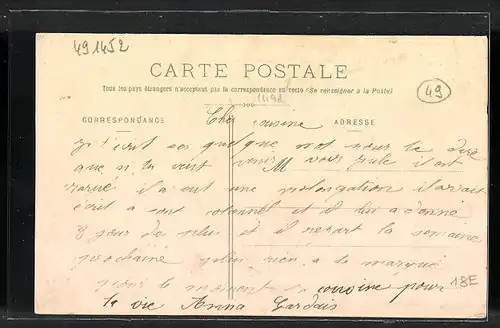 491452
CARTE POSTALE
Tous les pays étrangers n'acceptent pas la correspondance au recto (Se renseigner à la Poste)
49
CORRESPONDANCE
ADRESSE
Cher cousine
je t'écrit ses quelque mot pour te dire
que si tu veut venir voir jule il est
M
arrivé il a eut une prolongation il avait
écrit a sont colonel et il lui a donné
8 jour de plus et il repart la semaine
prochaine plus rien a te marqué
pour le moment ta cousine pour
la vie Anna
18E